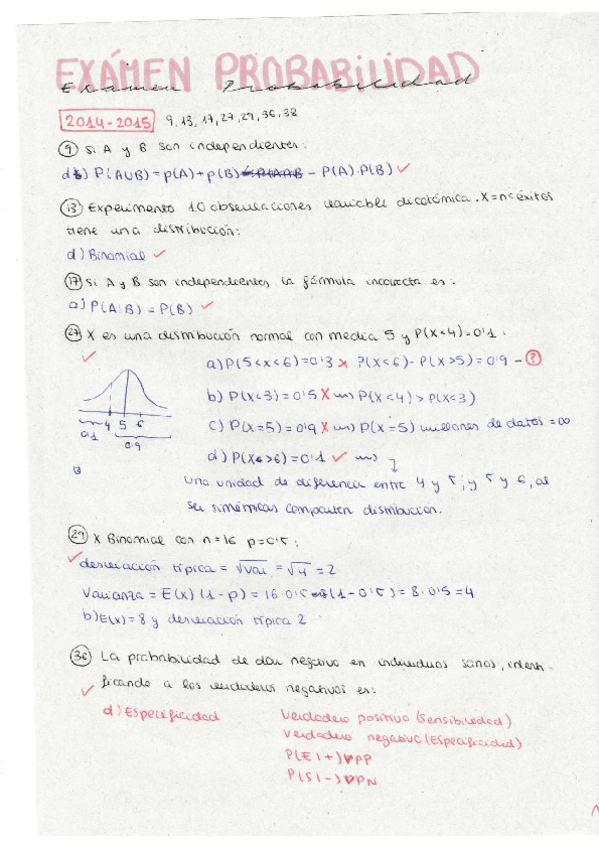 EXÁMEN PROBABILIDAD
Examen Probabilidad
2014-2015 9, 13, 17, 27, 29, 36, 38
9 Si A y B son independientes:
d) P(AUB) = p(A) + p(B) - P(A).P(B) ✓
13 Experimento 10 observaciones variable dicotómica. X = nº éxitos
tiene una distribución:
d) Binomial ✓
17 Si A y B son independientes la fórmula incorrecta es:
a) P(A:B) = P(B) ✓
27 X es una distribución normal con media 5 y P(X<4) = 0'1:
✓ a) P(5<X<6) = 0'3 x P(X<6) - P(X>5) = 0'9 - ?
b) P(X<3) = 0'5 X P(X<4) > P(X<3)
4 5 6
0'1
0'9
c) P(X=5) = 0'9 X P(X=5) millones de datos = ∞
d) P(X>6) = 0'1 ✓
una unidad de diferencia entre 4 y 5, y 5 y 6, al
ser simétricas comparten distribución.
29 X Binomial con n=16 p=0'5:
✓ desviación típica = √var = √4 = 2
Varianza = E(x) (1-p) = 16·0'5 (1-0'5) = 8·0'5 = 4
b) E(x) = 8 y desviación típica 2
36 La probabilidad de dar negativo en individuos sanos, identi-
ficando a los verdaderos negativos es:
✓ d) Especificidad Verdadero positivo (Sensibilidad)
Verdadero negativo (Especificidad)
P(E|+) VPP
P(S|-) VPN